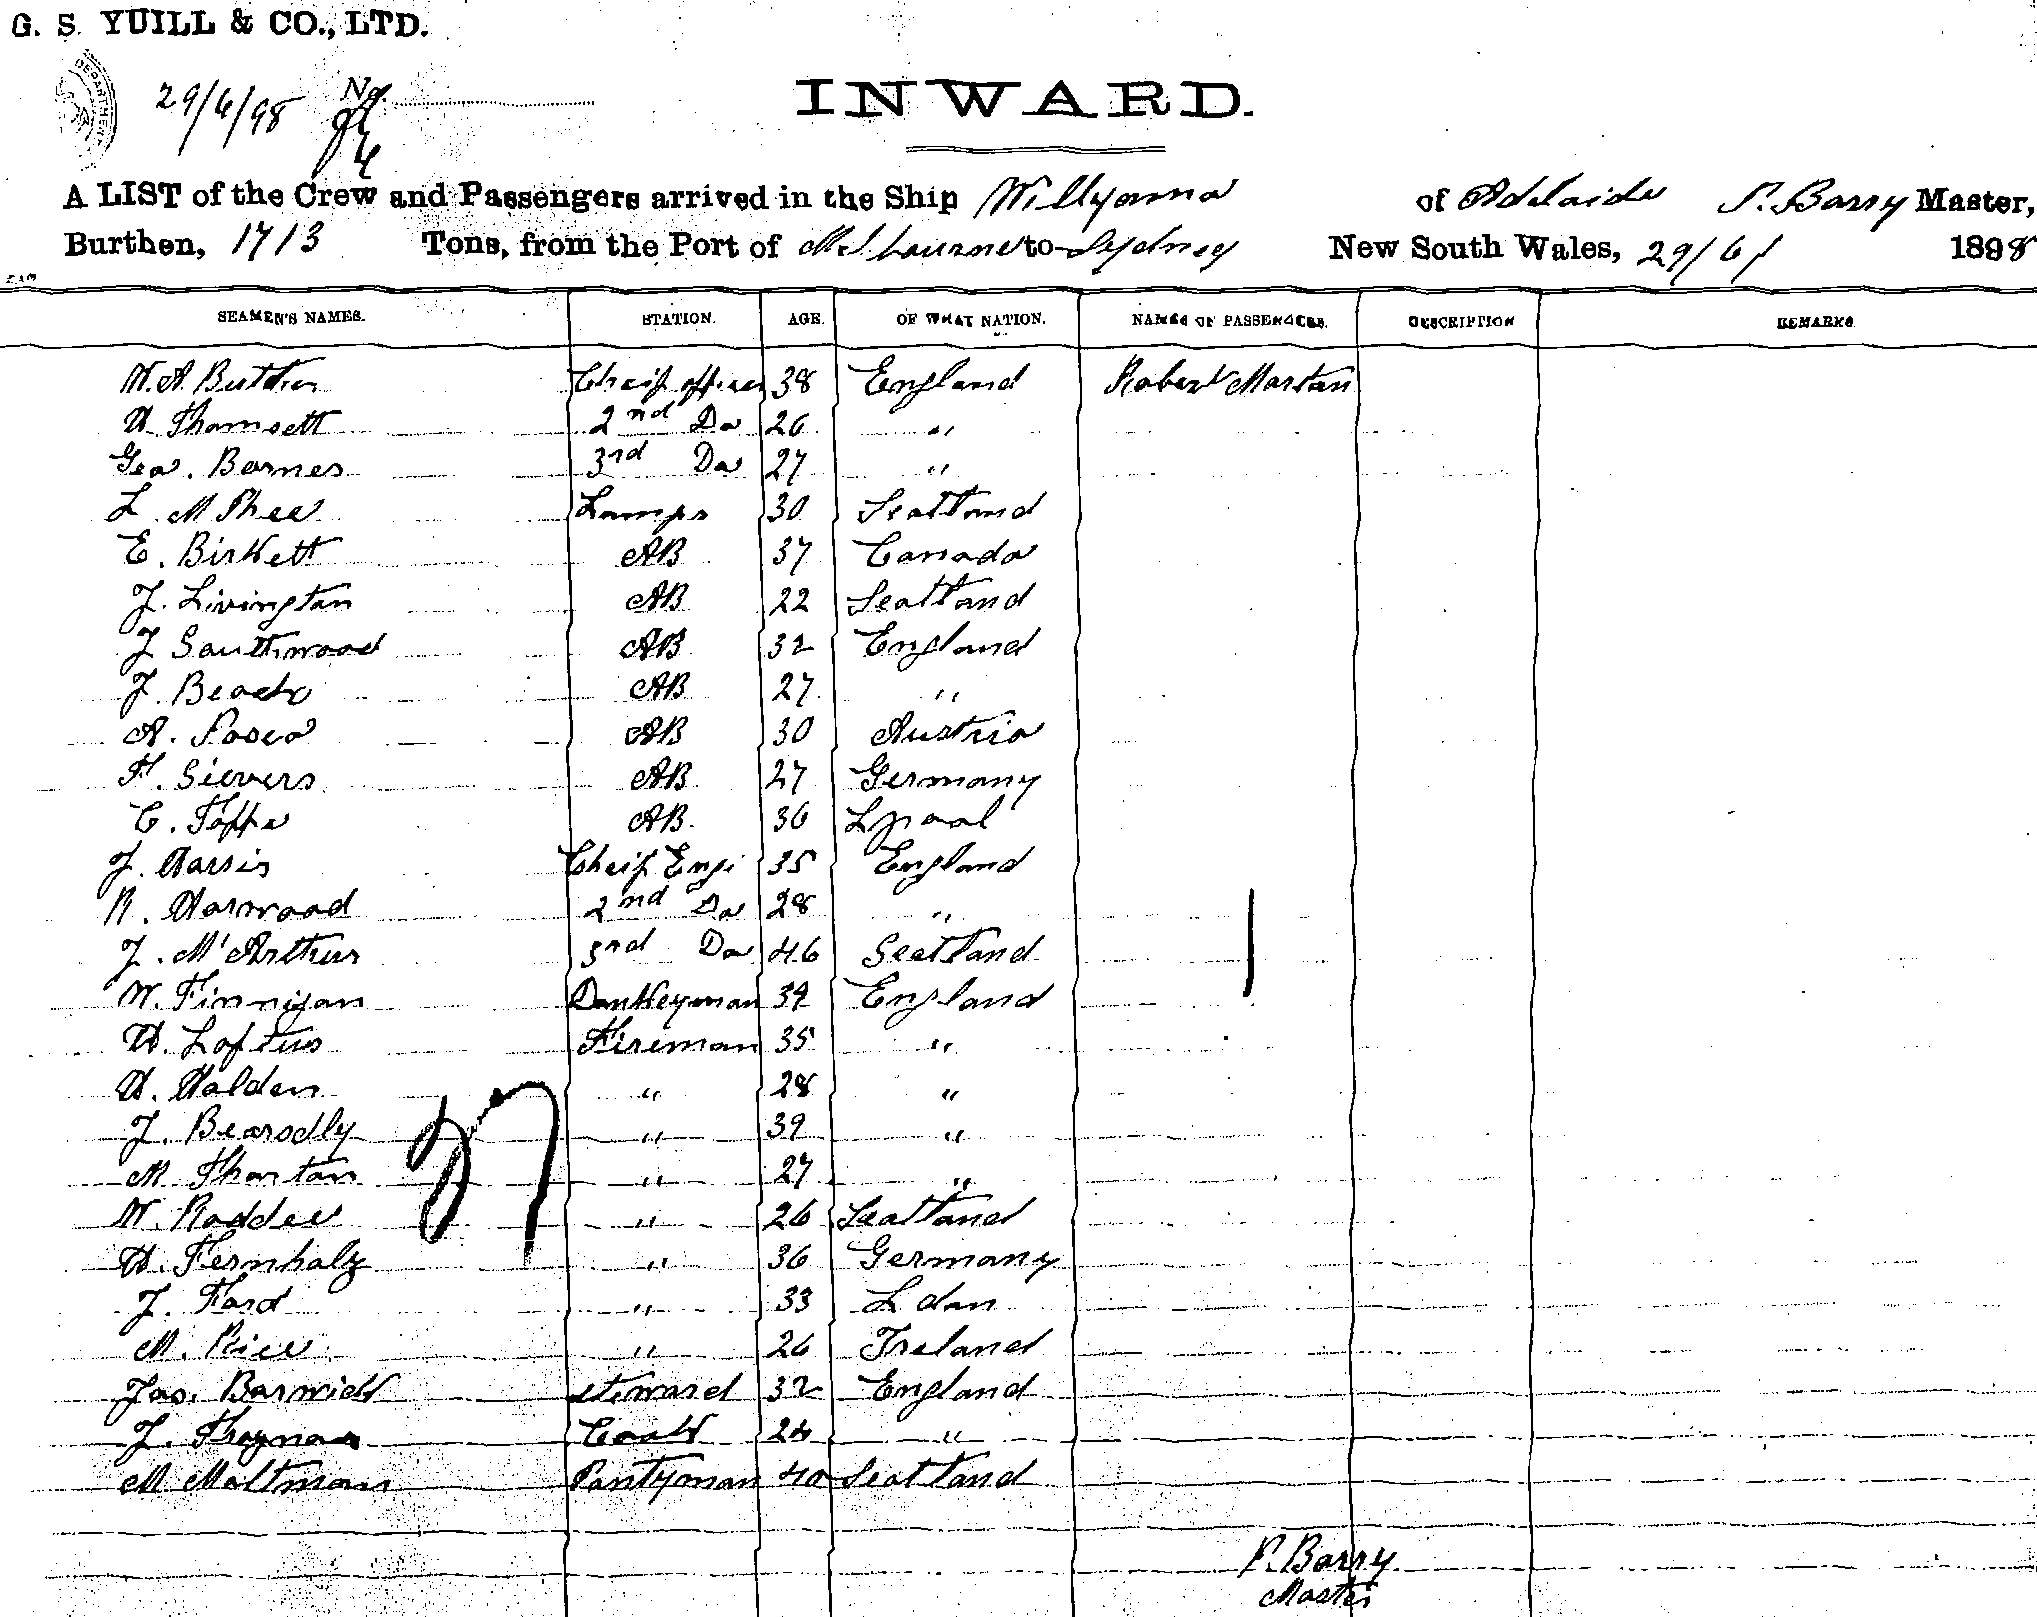 G. S. YUILL & CO., LTD.
29/6/98 No.
INWARD.
A LIST of the Crew and Passengers arrived in the Ship Willyama of Adelaide P. Barry Master,
Burthen, 1713 Tons, from the Port of Melbourne to Sydney New South Wales, 29/6/ 1898
SEAMEN'S NAMES. STATION. AGE. OF WHAT NATION. NAMES OF PASSENGERS. DESCRIPTION REMARKS
W. A. Butcher Cheif officer 38 England Robert Martan
H. Thomsett 2nd Do 26 "
Geo. Barnes 3rd Do 27 "
L. McPhee Lamps 30 Scotland
E. Birkett AB 37 Canada
J. Livington AB 22 Scotland
J Southwood AB 32 England
J. Beach AB 27 "
A. AB 30 Austria
F. Sievers AB 27 Germany
C. AB. 36 Lpool
J. Harris Cheif Engi 35 England
R. Harwood 2nd Do 28 "
J. McArthur 3rd Do 46 Scotland
W. Finnigan Donkeyman 39 England
H. Loftus Fireman 35 "
H. Holden " 28 "
J. Bearsdly " 39 "
M. Thorton " 27 "
W. Roddee " 26 Scotland
H. Fernholz " 36 Germany
J. Ford " 33 L don
M. Rice " 26 Ireland
Jas. Barwick steward 32 England
J. Cook 24 "
M Moltman Pantyman 40 Scotland
27
P. Barry
Master